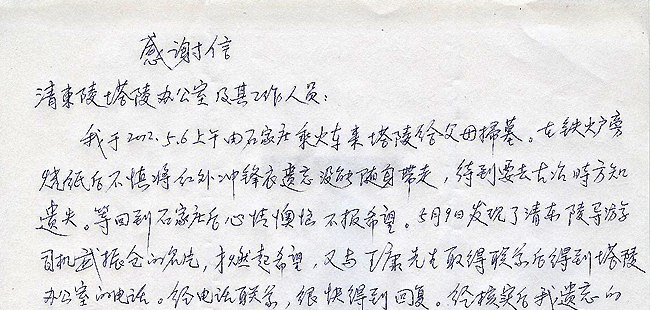 感谢信
清東陵塔陵办公室及其工作人员:
我于2012.5.6上午由石家庄乘火车来塔陵给父母掃墓。在铁炉旁
烧纸后不慎将红外冲锋衣遗忘没能随身带走,待到要去古冶時方知
遗失。等回到石家庄后心情懊悔不报希望。5月9日发现了清东陵导游
司机武振仓的名片,才燃起希望,又与王康先生取得联系后得到塔陵
办公室的电话。经电话联系,很快得到回复。经核实后我遗忘的